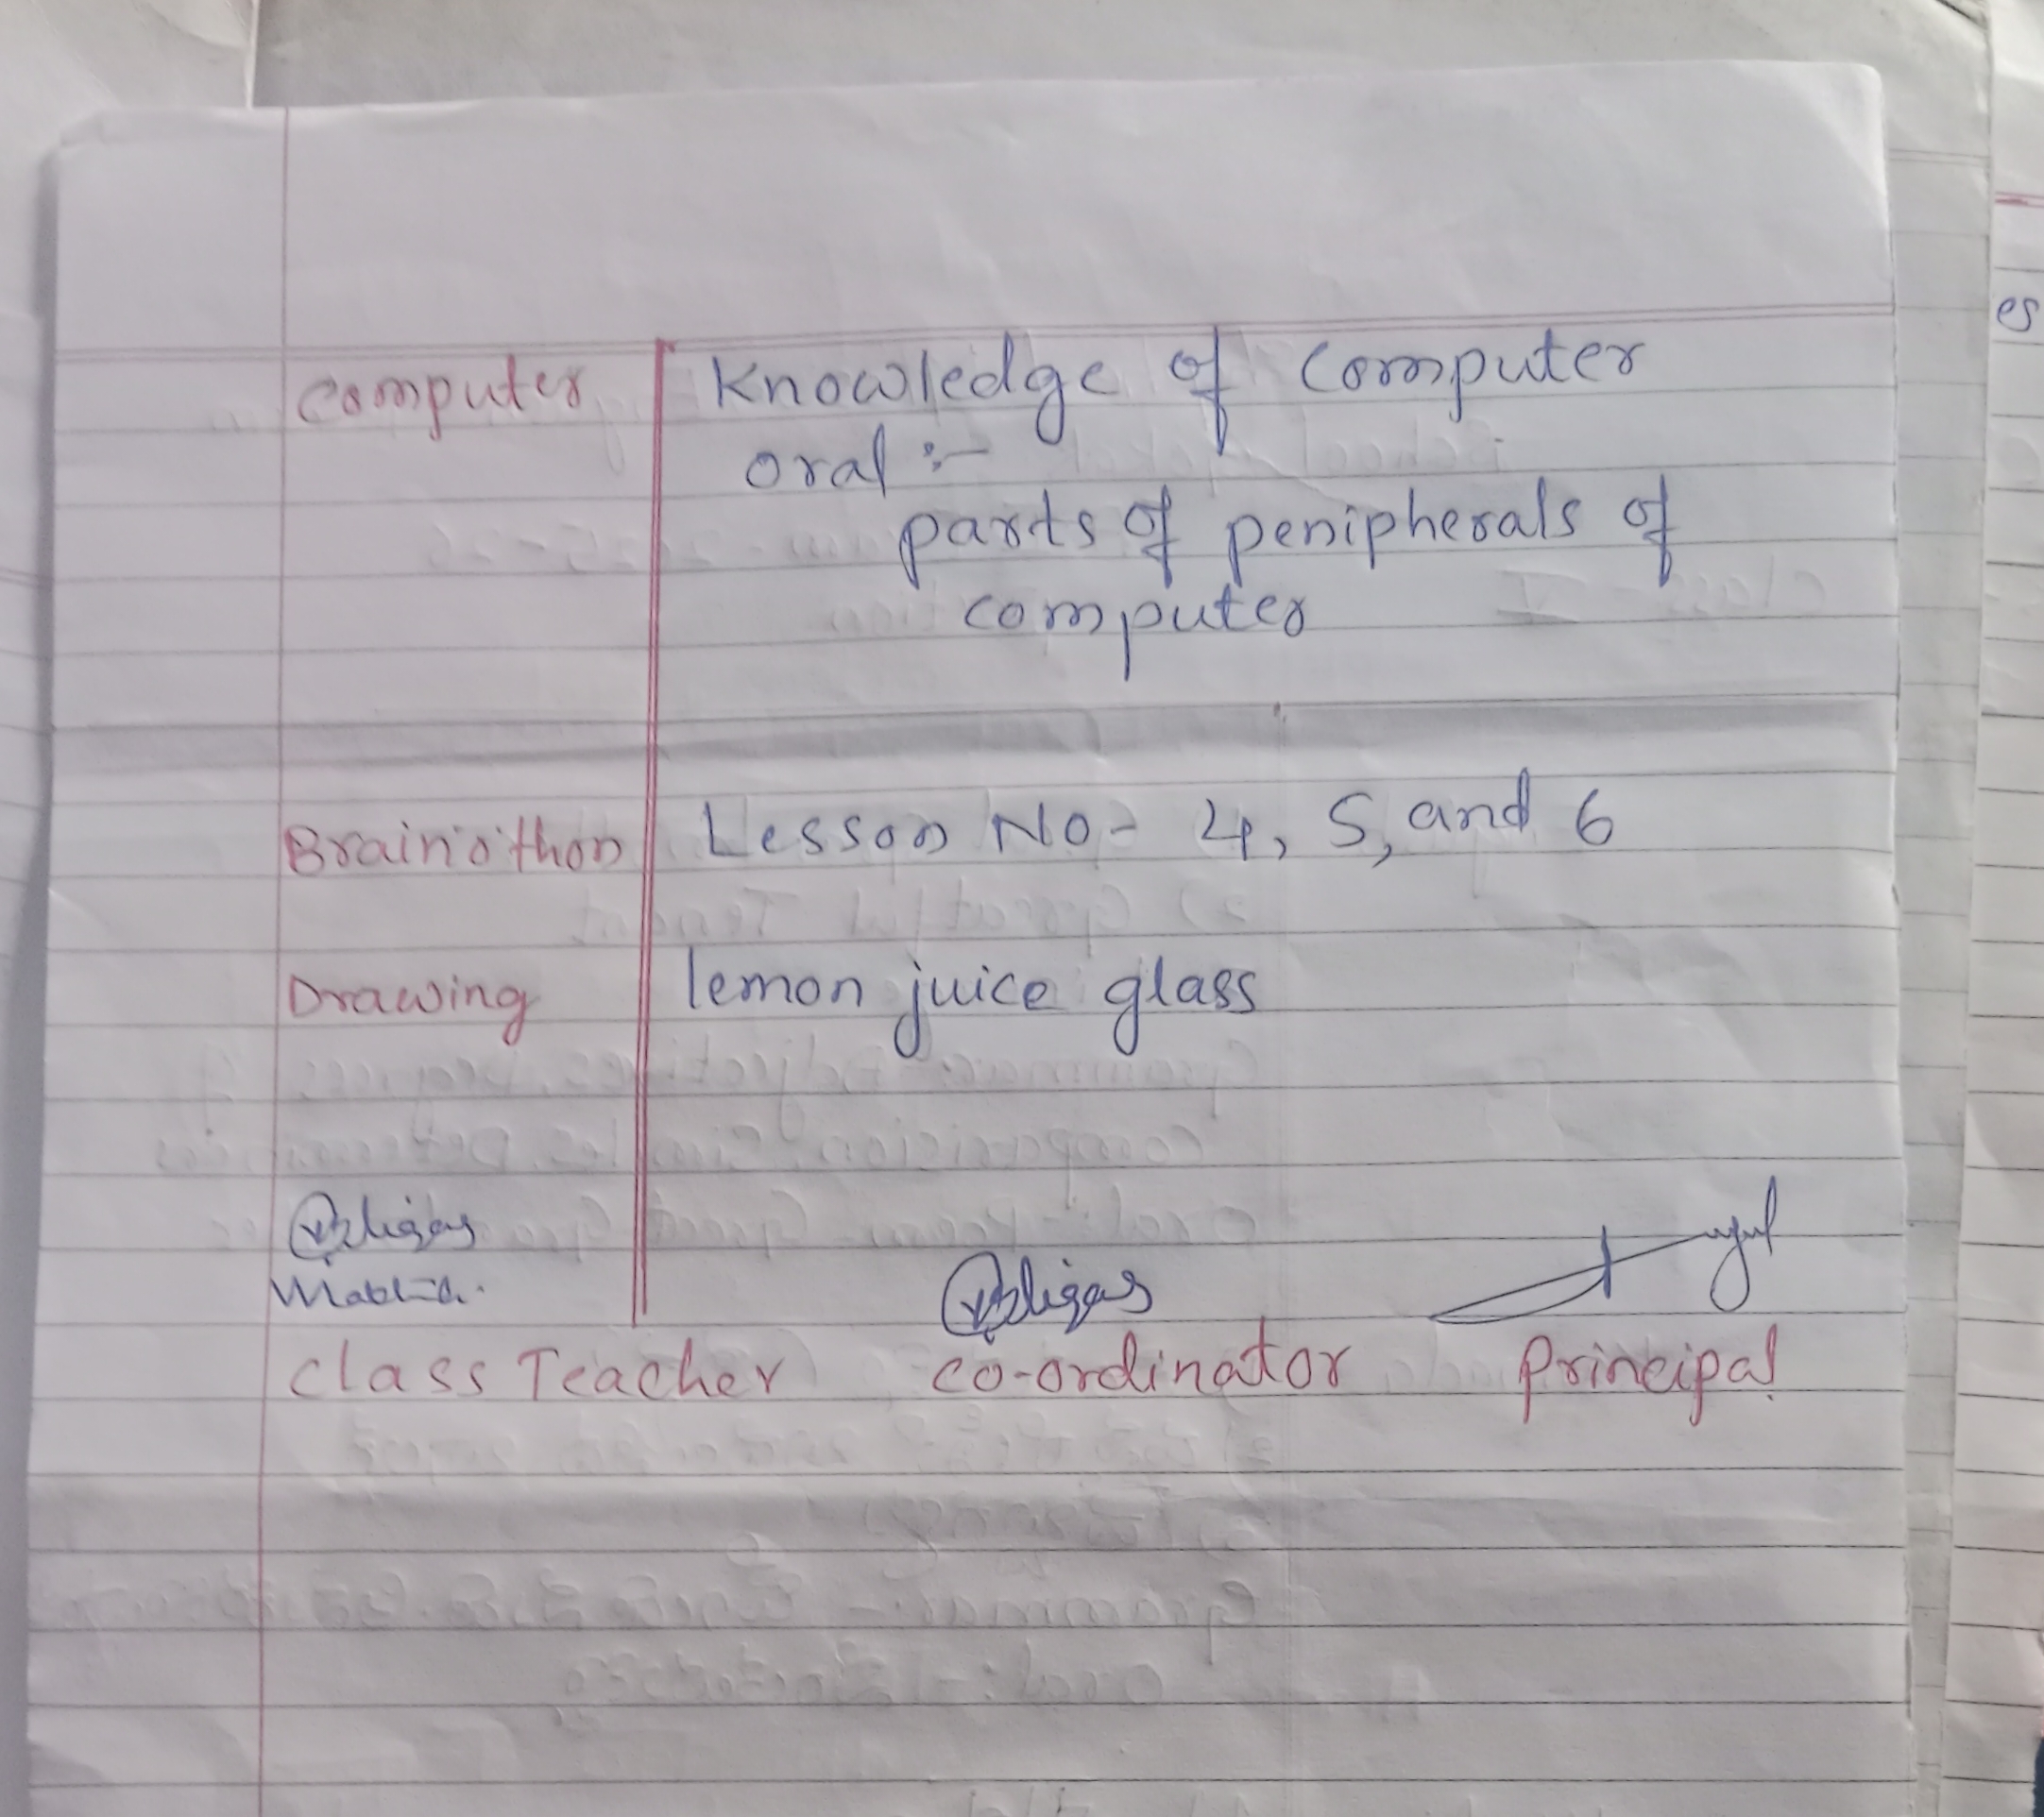 Computer Knowledge of Computer
oral :-
parts of peripherals of
computer
Brain'o'thon Lesson No- 4, 5, and 6
Drawing lemon juice glass
class Teacher co-ordinator Principal
es